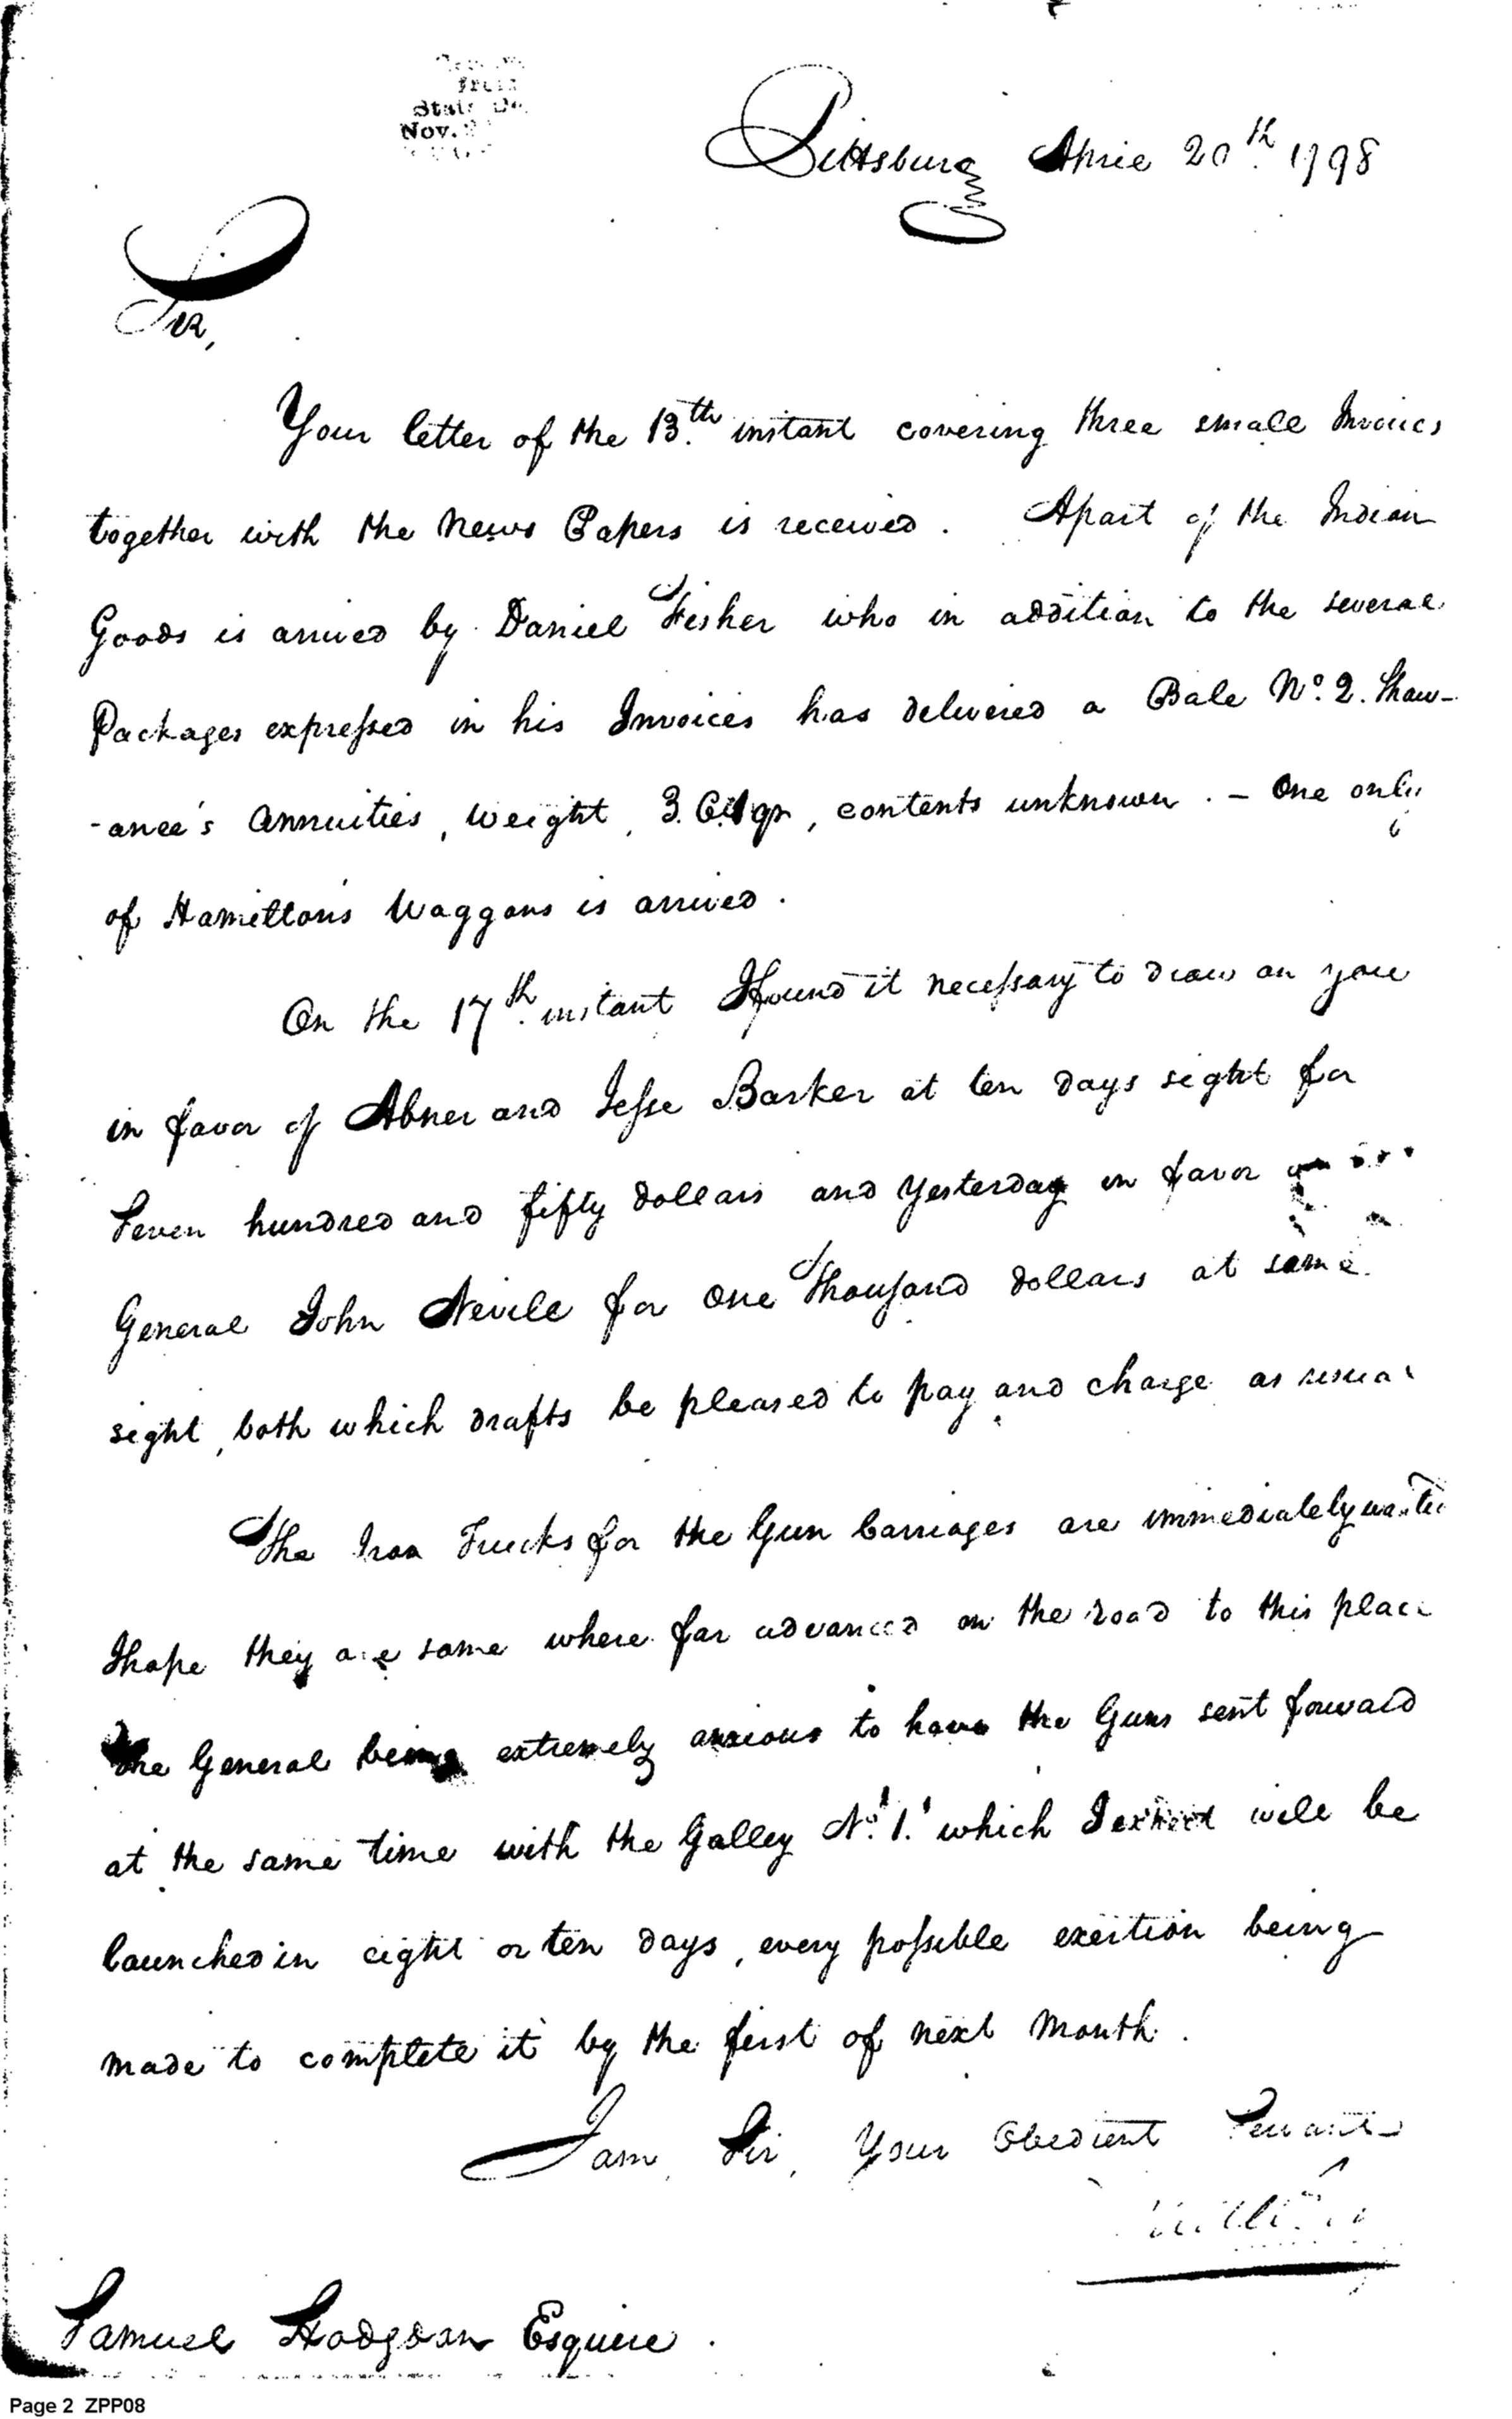 State De
Nov.
Pittsburg April 20th 1798
Sir,
Your letter of the 13th instant covering three small Invoices
together with the News Papers is received. Apart of the Indian
Goods is arrived by Daniel Fisher who in addition to the several
Packages expressed in his Invoices has delivered a Bale No. 2. Shaw-
-anee's Annuities, weight, 3. qr, contents unknown. - One only
of Hamilton's Waggons is arrived.
On the 17th instant I found it necessary to draw on you
in favor of Abner and Jesse Barker at ten days sight for
Seven hundred and fifty dollars and yesterday in favor
General John Nevile for One Thousand dollars at same
sight, both which drafts be pleased to pay and charge as usual
The Iron Trucks for the Gun Carriages are immediately wanted
I hope they are some where far advanced on the road to this place
the General being extremely anxious to have the Guns sent forward
at the same time with the Galley No. 1. which I expect will be
launched in eight or ten days, every possible exertion being
made to complete it by the first of next Month.
I am, Sir, Your Obedient Servant
Samuel Hodgdon Esquire.
Page 2 ZPP08